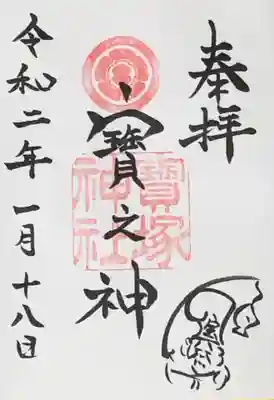 奉拝
寳之神
寳塚神社
令和二年一月十八日